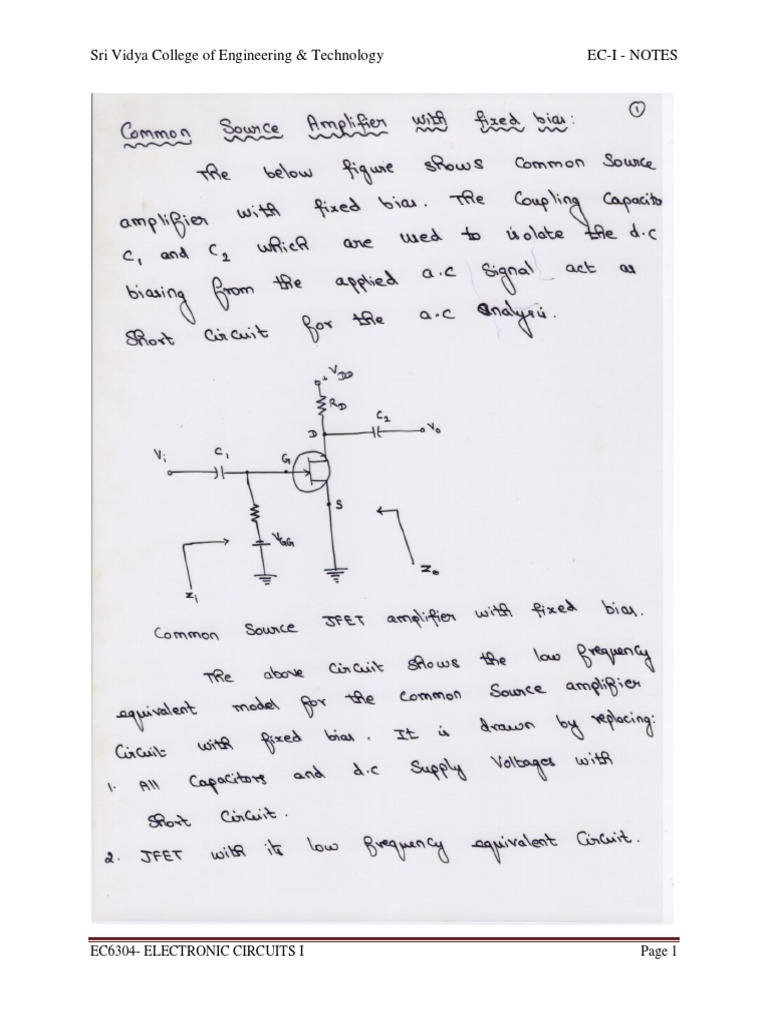 Sri Vidya College of Engineering & Technology EC-I - NOTES
1
Common Source Amplifier with fixed bias:
The below figure shows Common Source
amplifier with fixed bias. The Coupling Capacito
C1 and C2 which are used to isolate the d.c
biasing from the applied a.c Signal act as
Short Circuit for the a.c Analysis.
+VDD
RD
C2
D
Vo
Vi
C1
G
S
VGG
Zi
Zo
Common Source JFET amplifier with fixed bias.
The above Circuit shows the low frequency
equivalent model for the Common Source amplifier
Circuit with fixed bias. It is drawn by replacing:
1. All Capacitors and d.c Supply Voltages with
Short Circuit.
2. JFET with its low frequency equivalent Circuit.
EC6304- ELECTRONIC CIRCUITS I Page 1